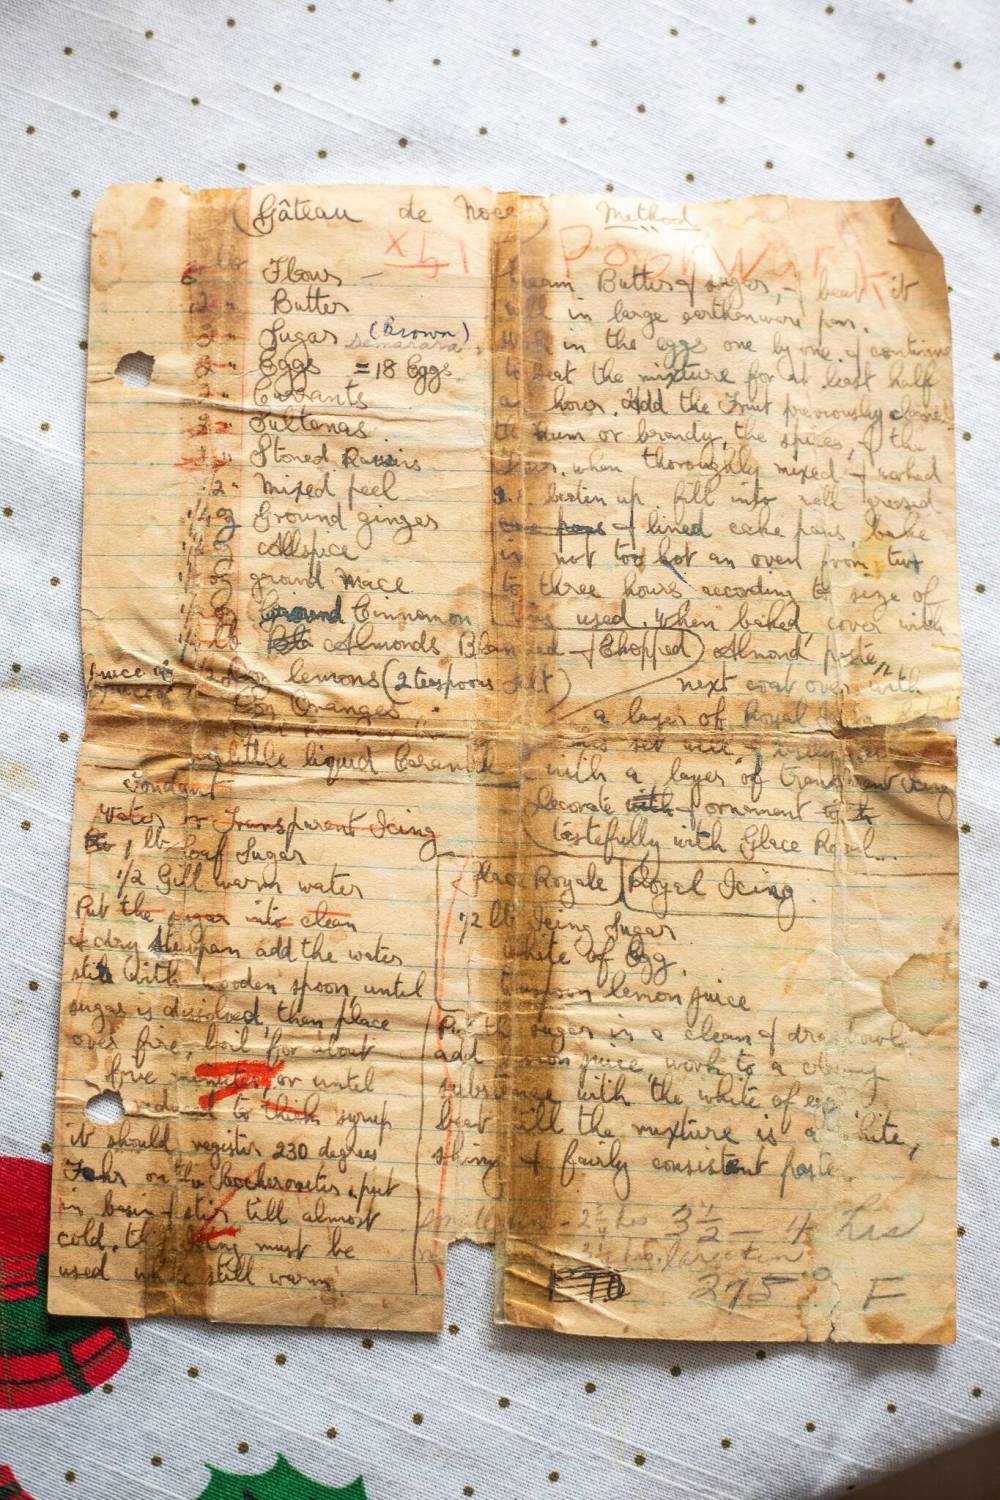 (Gâteau de Noce)
Flour —
Butter
Sugar (Brown)
Demarara
Eggs = 18 Eggs
Currants
Sultanas
Stoned Raisins
1/2 " mixed peel
1/4 oz Ground ginger
oz Allspice
oz ground Mace
oz Ground Cinnamon
lb Almonds Blanched & Chopped
juice of lemons (2 teaspoons salt)
Oranges "
little liquid Caramel
Fondant
Water or Transparent Icing
1 lb Loaf Sugar
1/2 Gill warm water
Put the sugar into clean
& dry stewpan add the water
stir with wooden spoon, until
sugar is dissolved then place
over fire, boil for about
five minutes, or until
reduced to thick syrup
it should register 230 degrees
Fahr on the Saccherometer, put
in basin & stir till almost
cold. this icing must be
used while still warm.
Method
Cream Butter & sugar, & beat it
well in large earthenware pan.
Work in the eggs one by one, & continue
to beat the mixture for at least half
an hour. Add the Fruit previously cleaned
the Rum or brandy, the spices, & the
flour, when thoroughly mixed & worked
beaten up. fill into well greased
& lined cake pans, bake
in not too hot an oven from two
to three hours according to size of
tins used. when baked, cover with
Almond paste,
next coat over with
a layer of Royal
set well &
with a layer of transparent icing
Decorate & ornament
tastefully with Glace Royal.
Glace Royale Royal Icing.
1/2 lb Icing Sugar
white of Egg.
teaspoon lemon juice
Put the sugar in a clean & dry bowl.
add lemon juice, work to a creamy
substance with the white of egg
beat till the mixture is a white,
shiny & fairly consistent paste.
small tin - 2 1/4 hrs 3 1/2 — 4 hrs
hrs. large tin
275° F